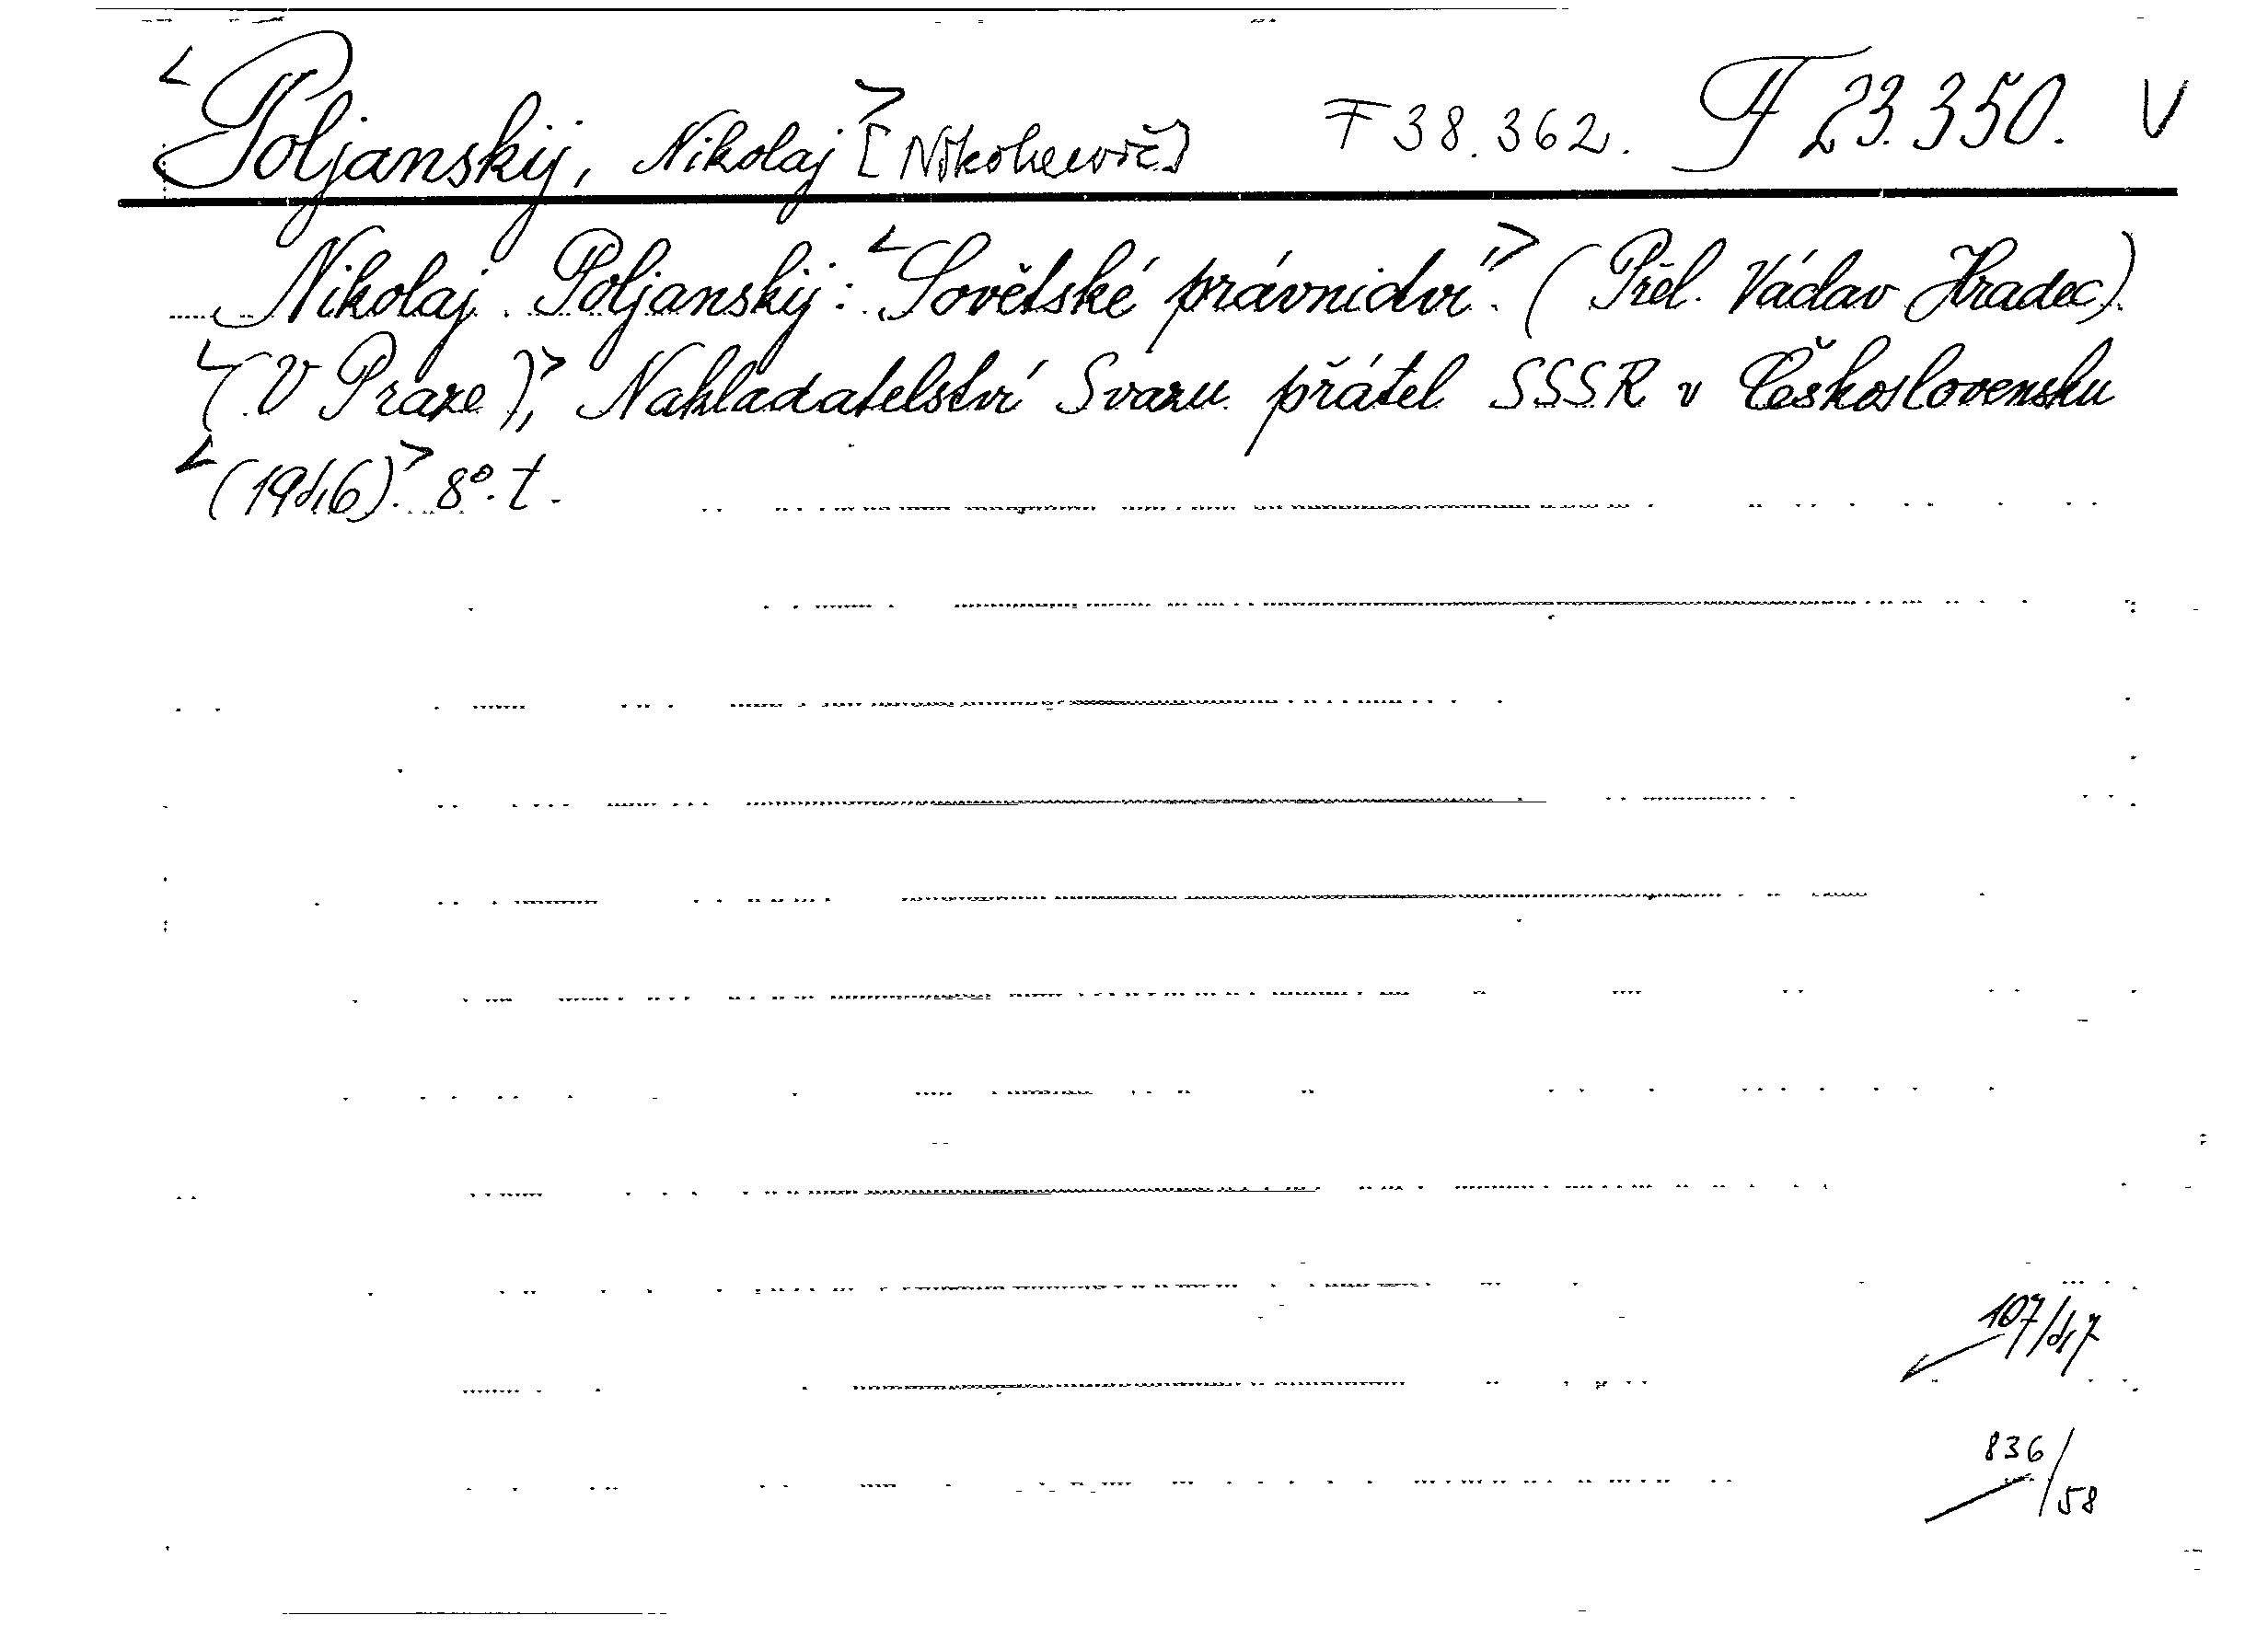 <Poljanskij, Nikolaj> [Nikolaevič] F 38.362. F 23.350. V
Nikolaj Poljanskij: <Sovětské právnictví.> (Přel. Václav Hradec).
<(V Praze),> Nakladatelství Svazu přátel SSSR v Československu
<(1946).> 8°. t.
107/47
836/58